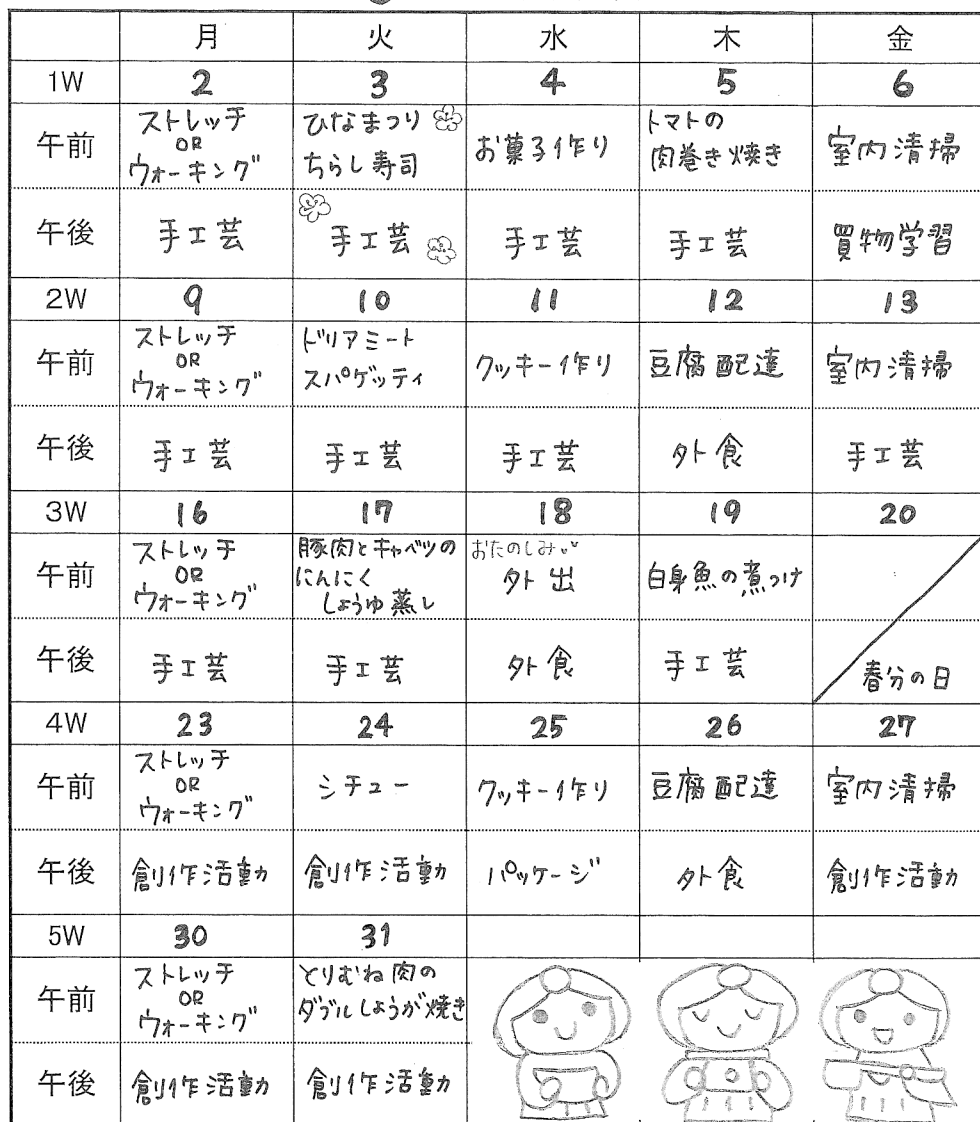 月 火 水 木 金
1W 2 3 4 5 6
午前 ストレッチ OR ウォーキング ひなまつり ちらし寿司 お菓子作り トマトの肉巻き焼き 室内清掃
午後 手工芸 手工芸 手工芸 手工芸 買物学習
2W 9 10 11 12 13
午前 ストレッチ OR ウォーキング ドリアミート スパゲッティ クッキー作り 豆腐配達 室内清掃
午後 手工芸 手工芸 手工芸 外食 手工芸
3W 16 17 18 19 20
午前 ストレッチ OR ウォーキング 豚肉とキャベツのにんにくしょうゆ蒸し おたのしみ 外出 白身魚の煮つけ
午後 手工芸 手工芸 外食 手工芸 春分の日
4W 23 24 25 26 27
午前 ストレッチ OR ウォーキング シチュー クッキー作り 豆腐配達 室内清掃
午後 創作活動 創作活動 パッケージ 外食 創作活動
5W 30 31
午前 ストレッチ OR ウォーキング とりむね肉のダブルしょうが焼き
午後 創作活動 創作活動